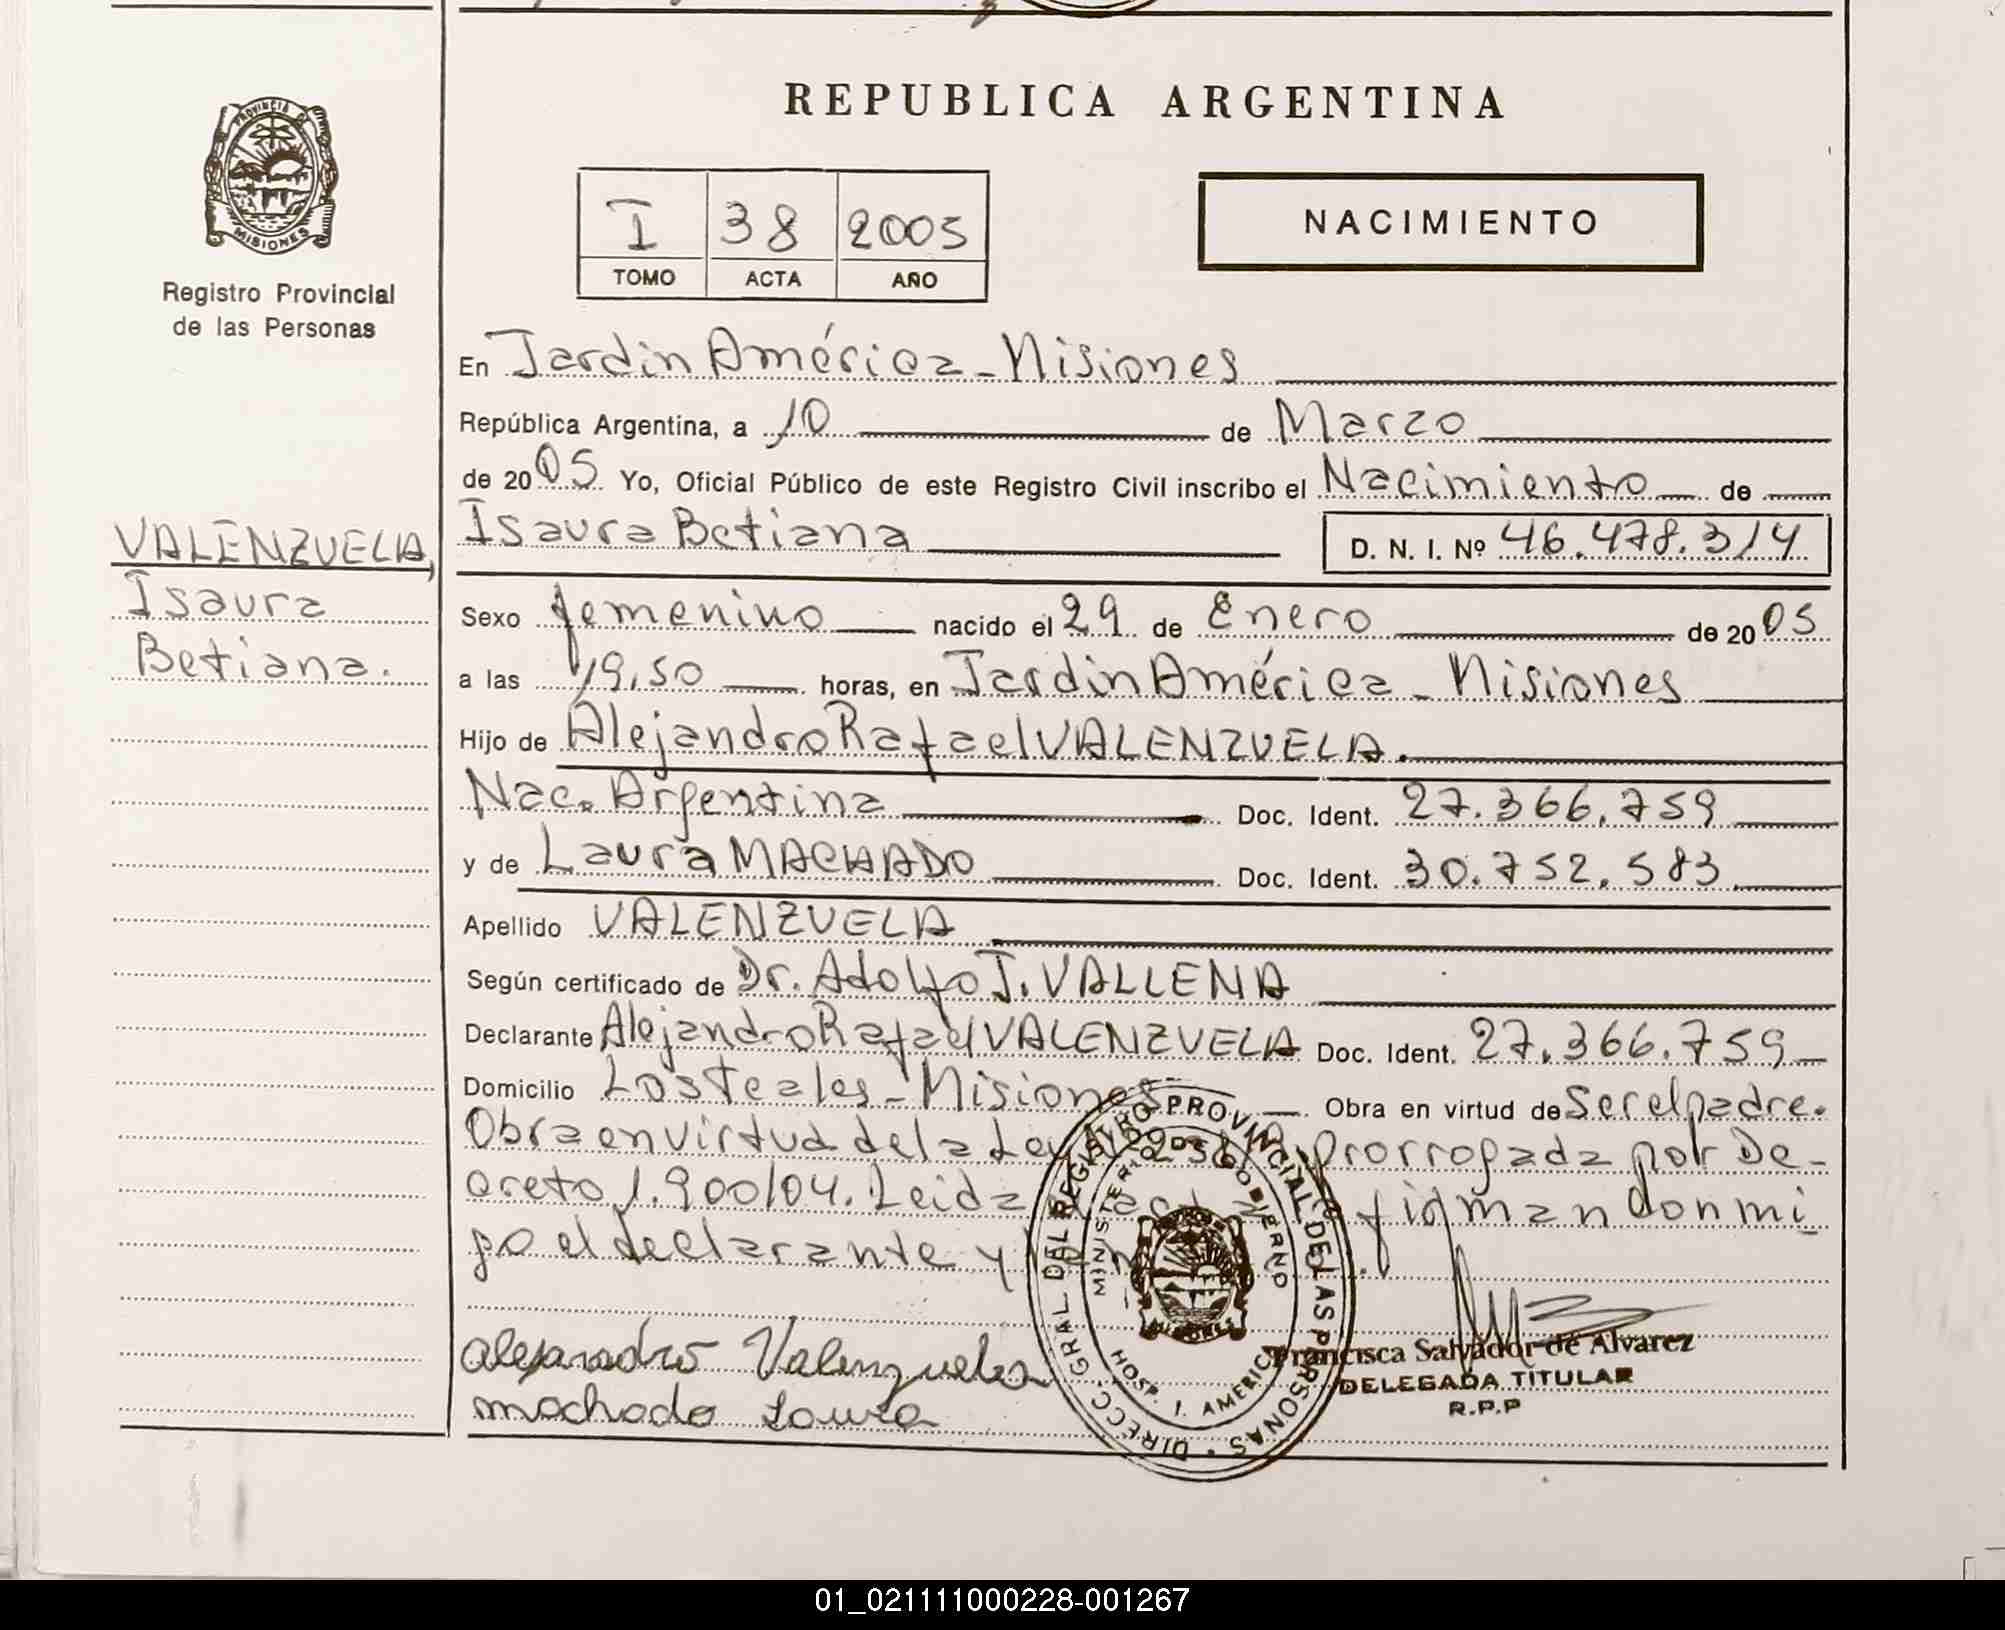 REPUBLICA ARGENTINA
PROVINCIA DE
MISIONES
Registro Provincial
de las Personas
I 38 2005
TOMO ACTA AÑO
NACIMIENTO
En Jardin América - Misiones
República Argentina, a 10 de Marzo
de 2005 Yo, Oficial Público de este Registro Civil inscribo el Nacimiento de
Isaura Betiana D. N. I. Nº 46.478.314
VALENZUELA,
Isaura
Betiana.
Sexo femenino nacido el 29 de Enero de 2005
a las 19,50 horas, en Jardin América - Misiones
Hijo de Alejandro Rafael VALENZUELA.
Nac. Argentina Doc. Ident. 27.366.759
y de Laura MACHADO Doc. Ident. 30.752.583
Apellido VALENZUELA
Según certificado de Dr. Adolfo J. VALLENA
Declarante Alejandro Rafael VALENZUELA Doc. Ident. 27.366.759
Domicilio Los Teales - Misiones Obra en virtud de Ser el padre.
Obra en virtud de la Ley prorrogada por De-
creto 1.900/04. Leida firman con mi
go el declarante y
alejandro Valenzuela
machado Laura
DIRECC. GRAL. DEL REGISTRO PROVINCIAL DE LAS PERSONAS
MINISTERIO DE GOBIERNO
HOSP. J. AMERICA
Francisca Salvador de Alvarez
DELEGADA TITULAR
R.P.P
01_021111000228-001267